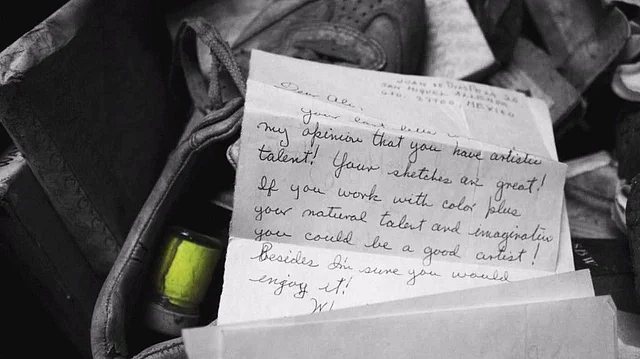 JUAN DE DIOS PEZA 26
SAN MIGUEL ALLENDE
GTO. 37700, MEXICO
Dear Alex,
Your last letter
my opinion that you have artistic
talent! Your sketches are great!
If you work with color plus
your natural talent and imagination
you could be a good artist!
Besides I'm sure you would
enjoy it!